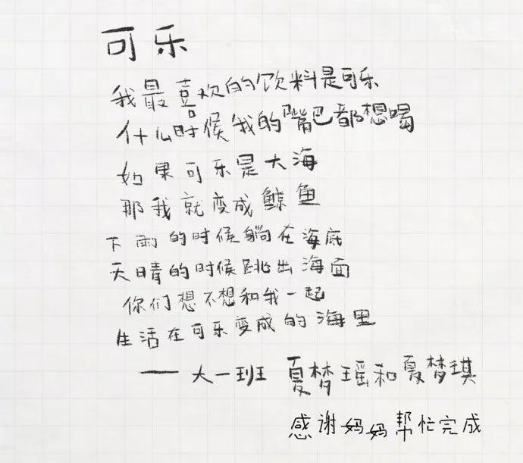 可乐
我最喜欢的饮料是可乐
什么时候我的嘴巴都想喝
如果可乐是大海
那我就变成鲸鱼
下雨的时候躺在海底
天晴的时候跳出海面
你们想不想和我一起
生活在可乐变成的海里
—— 大一班 夏梦瑶和夏梦琪
感谢妈妈帮忙完成